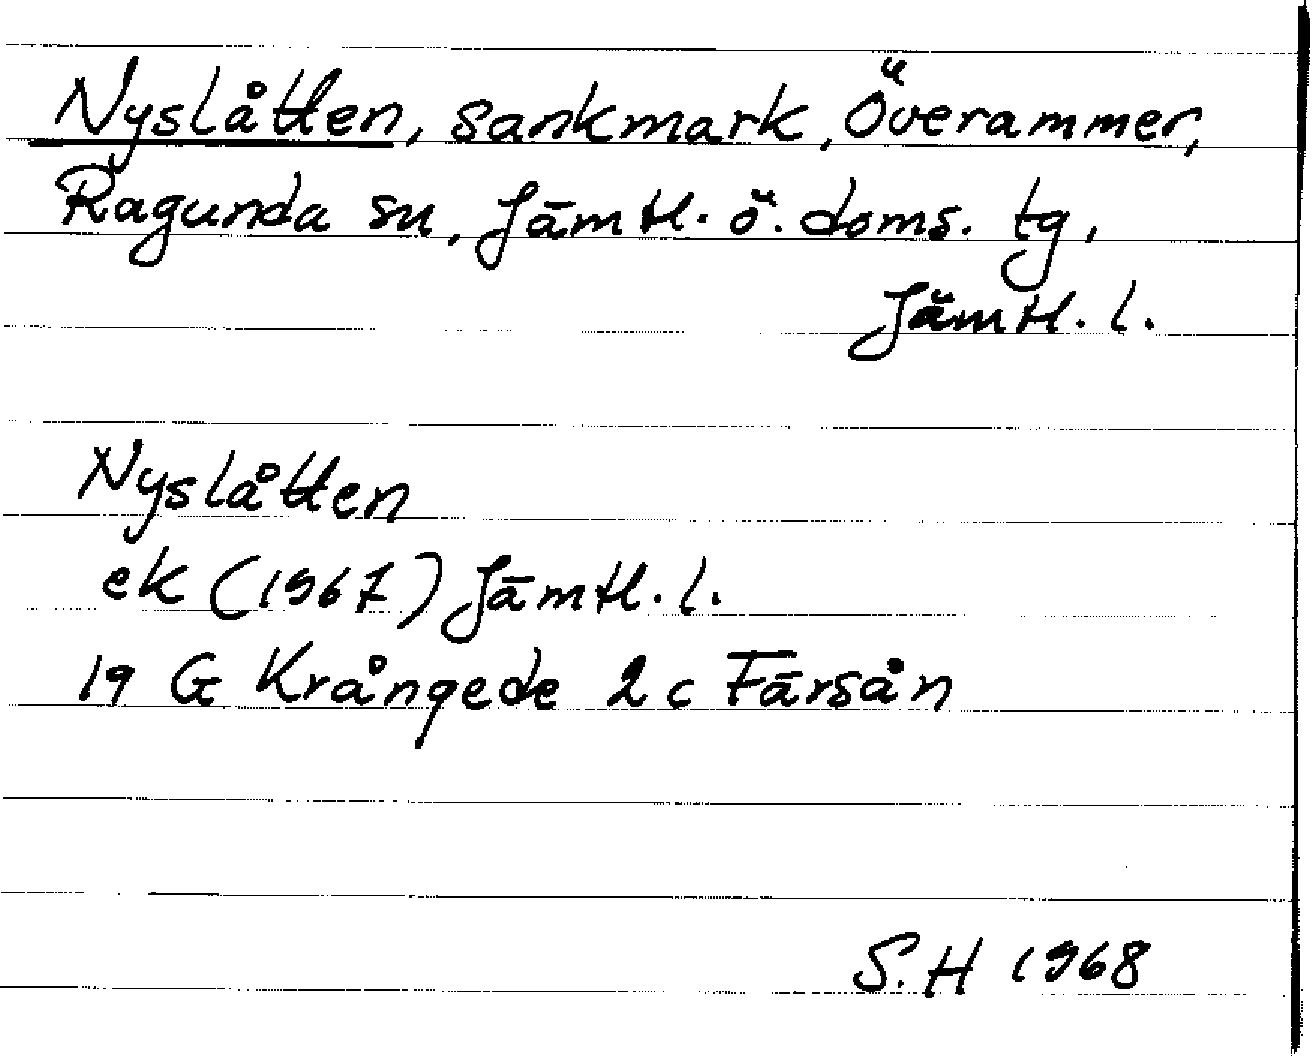 Nyslåtten, sankmark, Överammer,
Ragunda sn, Jämtl. ö. doms. tg,
Jämtl. l.
Nyslåtten
ek (1967) Jämtl. l.
19 G Krångede 2 c Färsån
S.H 1968